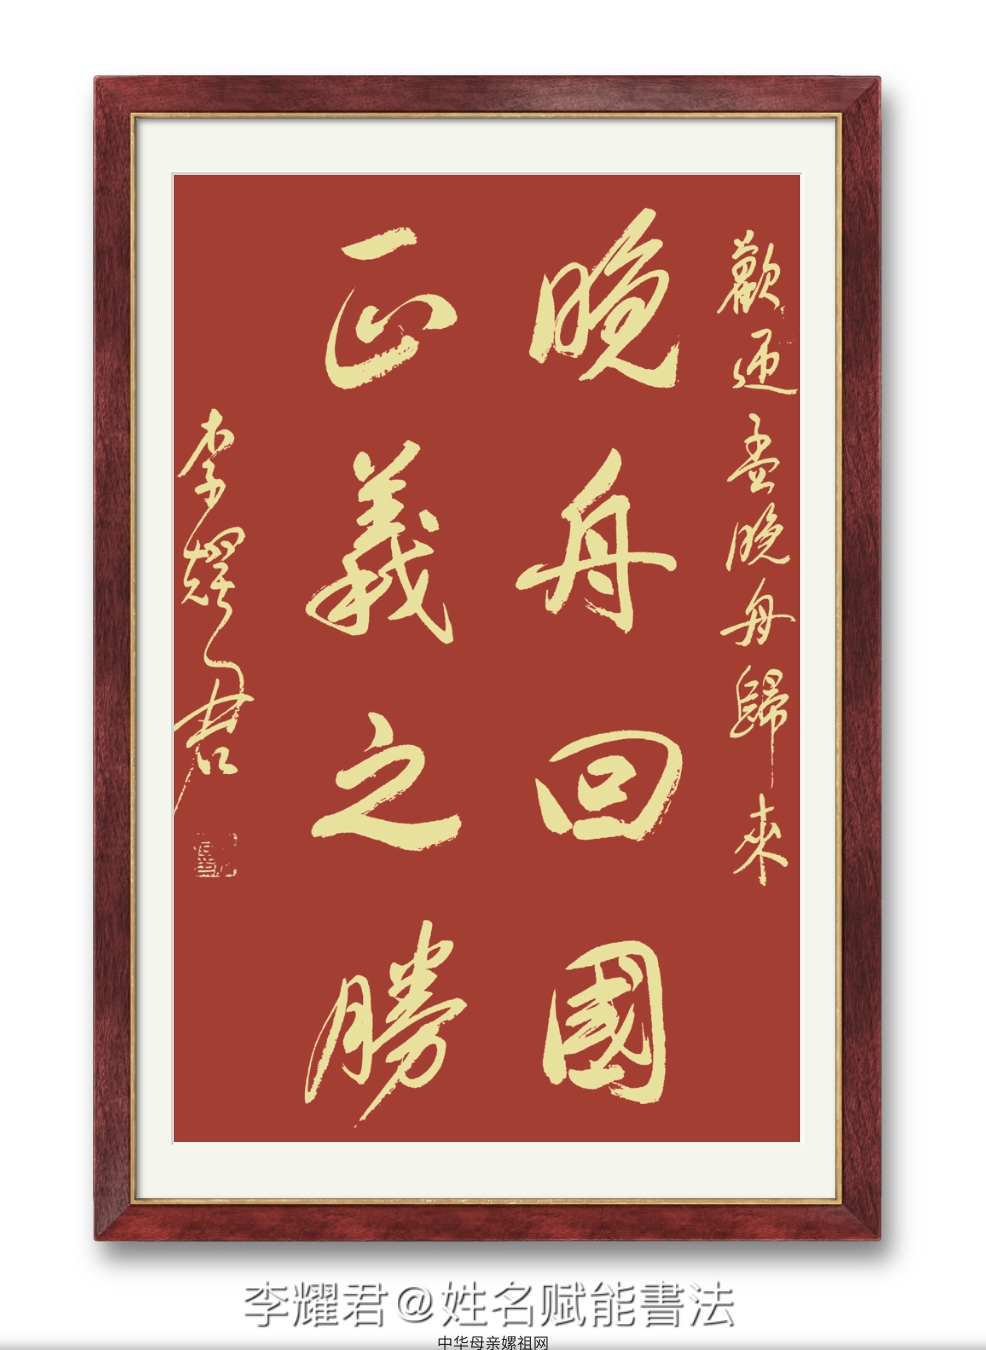 歡迎孟晚舟歸來
晚舟回國
正義之勝
李耀君
李耀君@姓名赋能書法
中华母亲嫘祖网